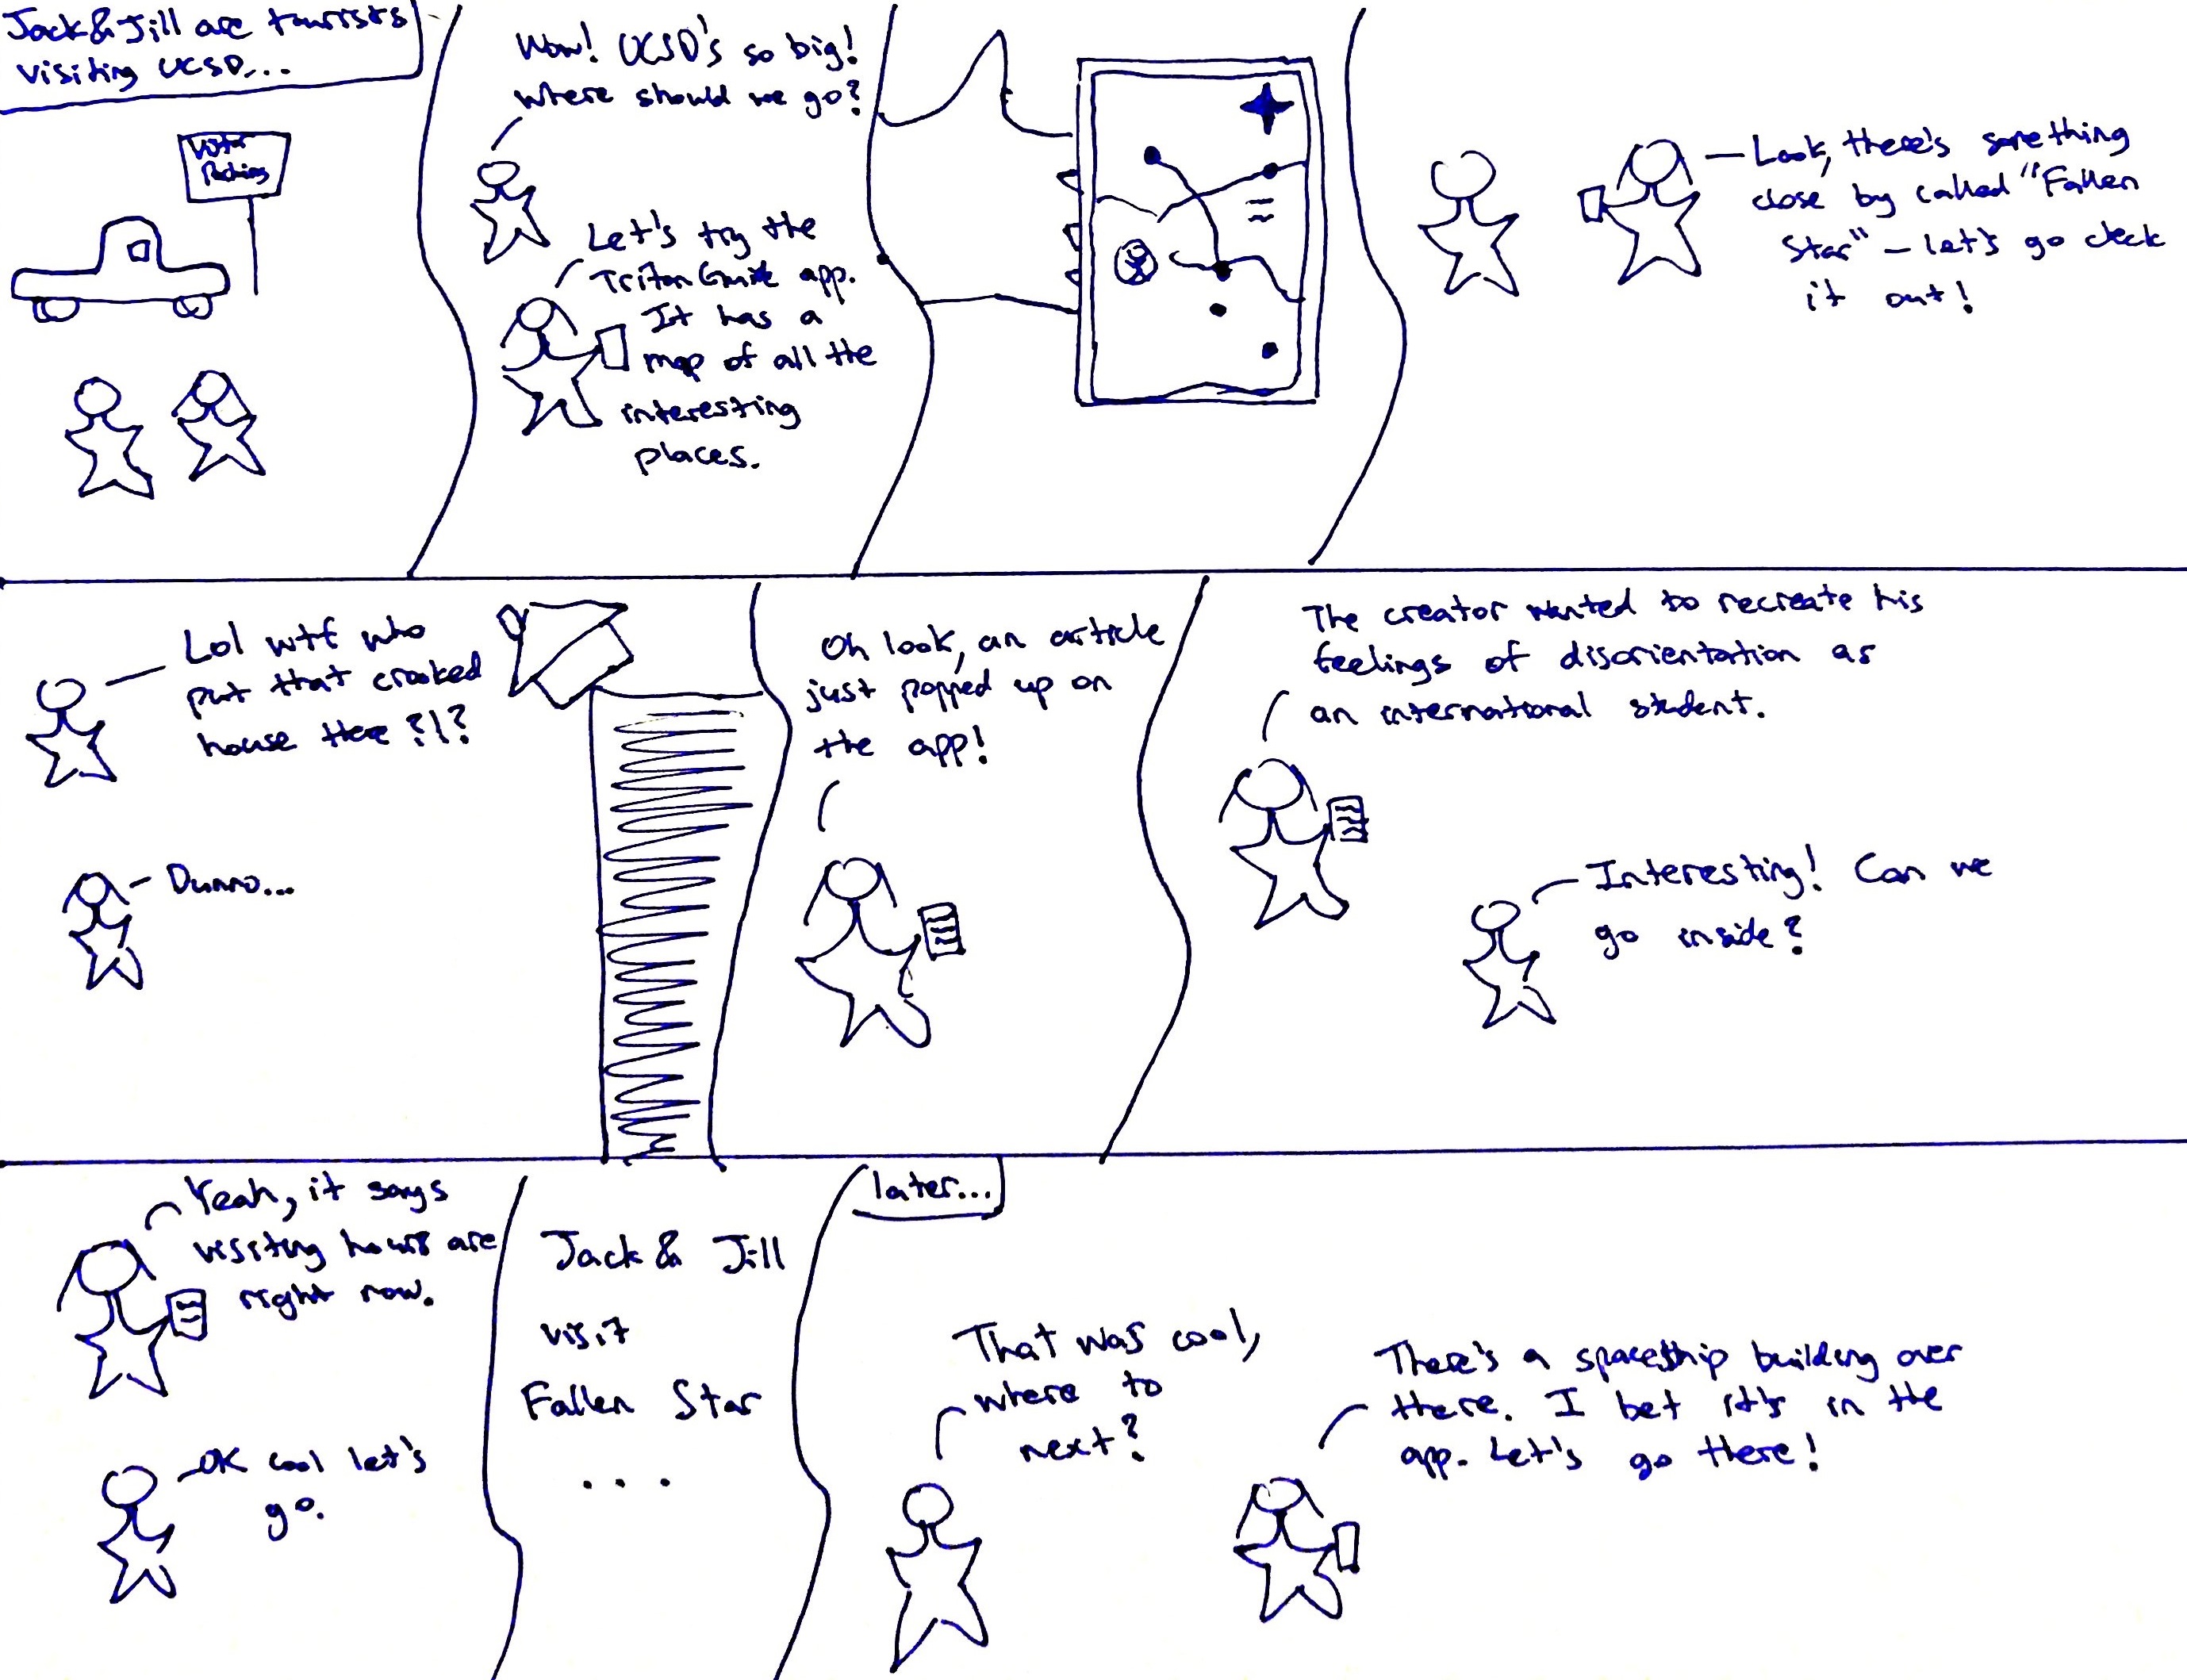 Jack & Jill are tourists
visiting UCSD...
Visitor
Parking
Wow! UCSD's so big!
Where should we go?
Let's try the
Triton Guide app.
It has a
map of all the
interesting
places.
Look, there's something
close by called "Fallen
Star" – let's go check
it out!
Lol wtf who
put that crooked
house there?!?
Dunno...
Oh look, an article
just popped up on
the app!
The creator wanted to recreate his
feelings of disorientation as
an international student.
Interesting! Can we
go inside?
Yeah, it says
visiting hours are
right now.
OK cool let's
go.
Jack & Jill
visit
Fallen Star
. . .
later...
That was cool,
where to
next?
There's a spaceship building over
there. I bet it's in the
app. Let's go there!